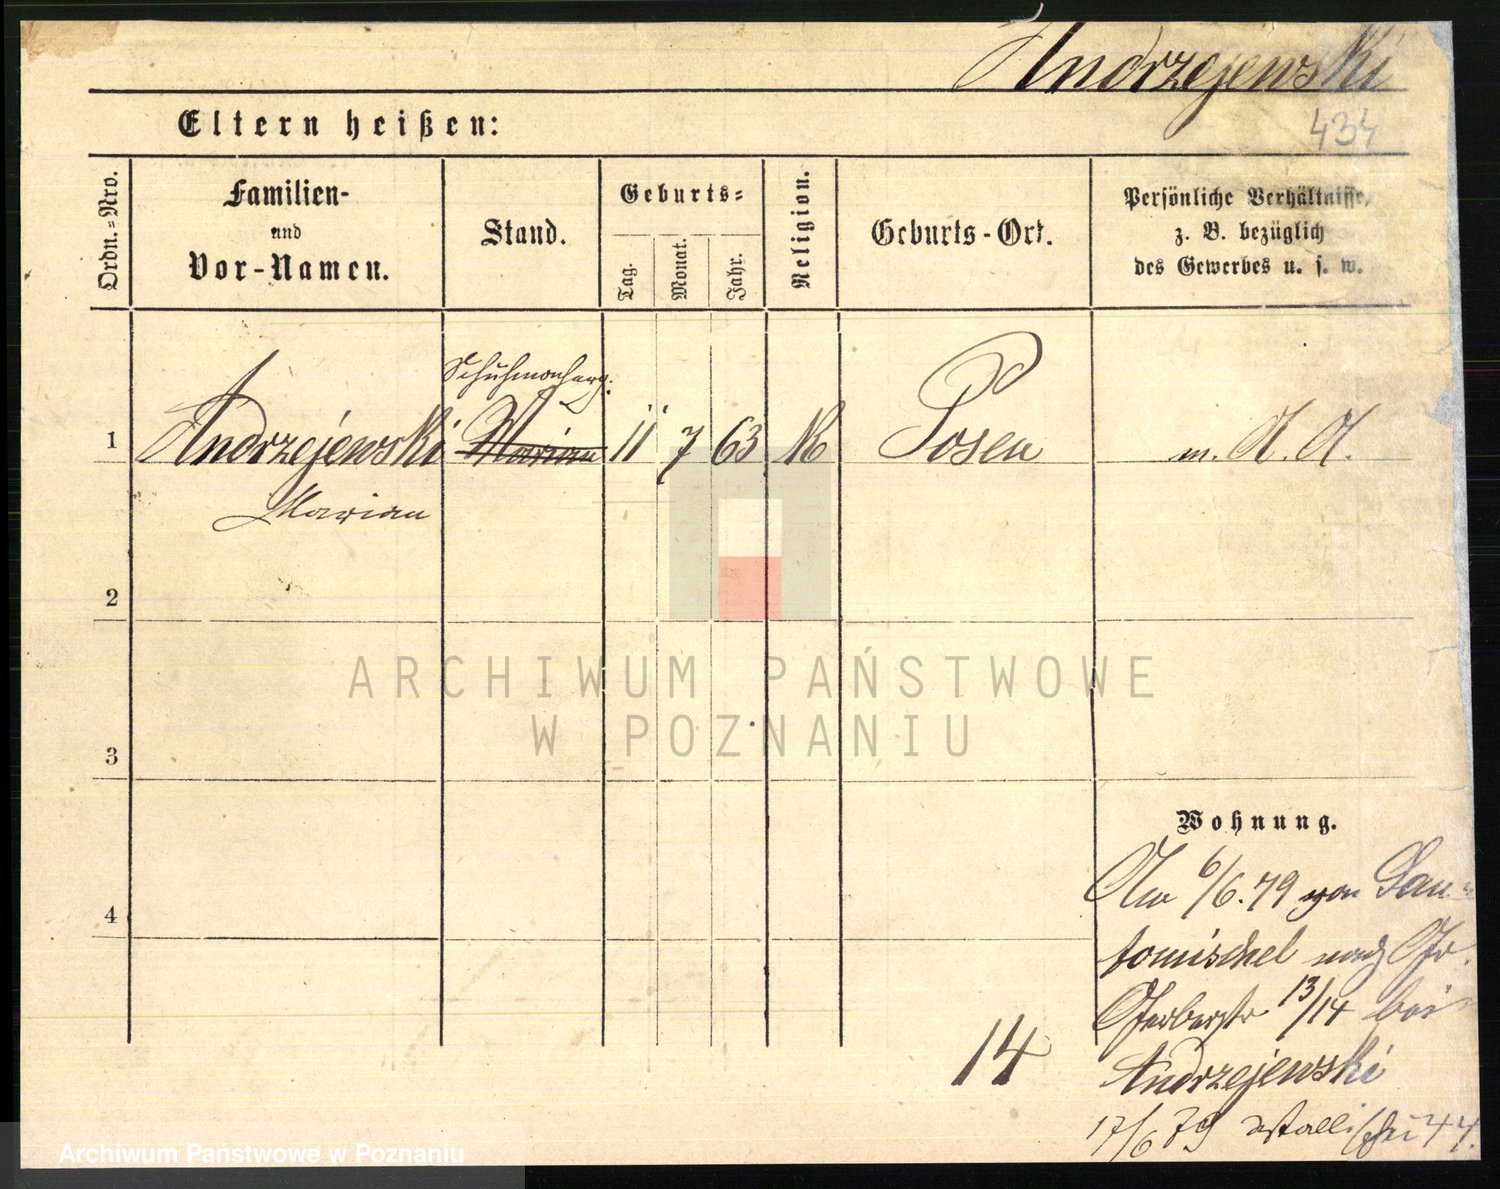 Andrzejewski
434
Eltern heißen:
Ordn.=Nro.
Familien-
und
Vor-Namen.
Stand.
Geburts=
Tag.
Monat.
Jahr.
Religion.
Geburts-Ort.
Persönliche Verhältnisse,
z. B. bezüglich
des Gewerbes u. s. w.
1
Andrzejewski
Marian
Marian
11 7 63
Posen
m. A. A.
2
3
4
ARCHIWUM PAŃSTWOWE
W POZNANIU
Wohnung.
6/6. 79 von Neu
tomischel nach Gr.
Gerberstr 13/14 bei
Andrzejewski
17/6 79
14
Archiwum Państwowe w Poznaniu